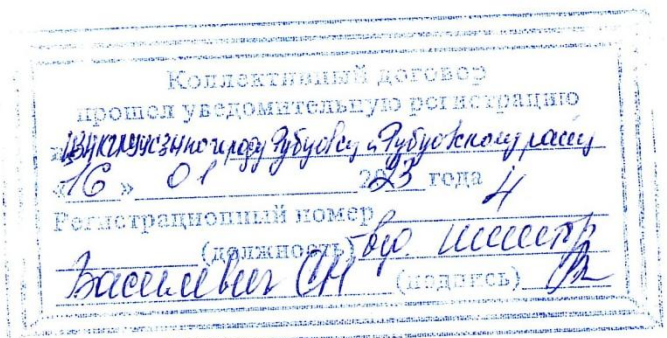 Коллективный договор
прошел уведомительную регистрацию
по городу Рубцовску и Рубцовскому району
«16» 01 2023 года
Регистрационный номер 4
(должность) вед. инспектор
Василевич СН (подпись)